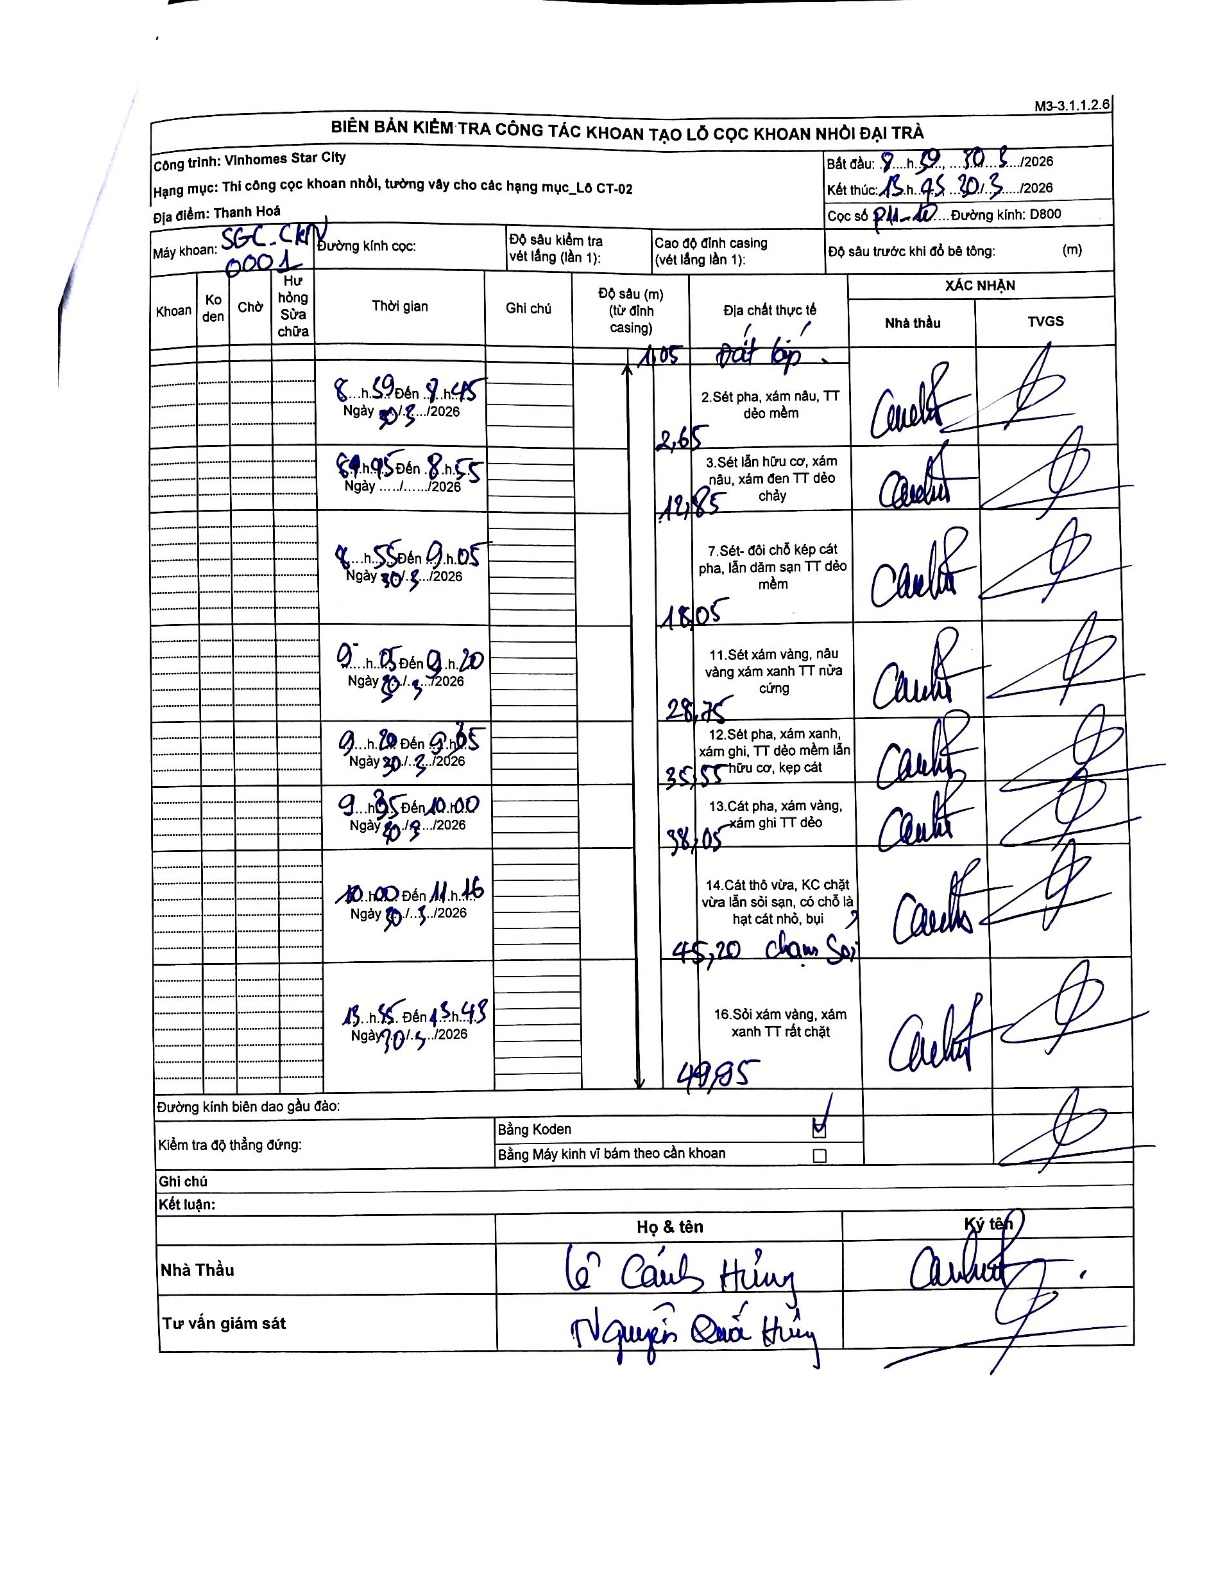 M3-3.1.1.2.6
BIÊN BẢN KIỂM TRA CÔNG TÁC KHOAN TẠO LỖ CỌC KHOAN NHỒI ĐẠI TRÀ
Công trình: Vinhomes Star City
Bắt đầu: 8...h.59..., ...30...3.../2026
Hạng mục: Thi công cọc khoan nhồi, tường vây cho các hạng mục_Lô CT-02
Kết thúc: 13.h..45 30./.3...../2026
Địa điểm: Thanh Hoá
Cọc số P11-10....Đường kính: D800
Máy khoan: SGC-CKN 0001
Đường kính cọc:
Độ sâu kiểm tra vét lắng (lần 1):
Cao độ đỉnh casing (vét lắng lần 1):
Độ sâu trước khi đổ bê tông: (m)
Khoan
Ko den
Chờ
Hư hỏng Sửa chữa
Thời gian
Ghi chú
Độ sâu (m) (từ đỉnh casing)
Địa chất thực tế
XÁC NHẬN
Nhà thầu
TVGS
1,05 Đất lấp
8...h.39 Đến 8.h.45
Ngày 30/.3..../2026
2.Sét pha, xám nâu, TT
dẻo mềm
2,65
h.45 Đến .8.h.55
Ngày ...../....../2026
3.Sét lẫn hữu cơ, xám
nâu, xám đen TT dẻo
chảy
12,85
8...h.55 Đến 9.h.05
Ngày 30/.3.../2026
7.Sét- đôi chỗ kép cát
pha, lẫn dăm sạn TT dẻo
mềm
18,05
9....h..05 Đến 9.h.20
Ngày 30/..3.../2026
11.Sét xám vàng, nâu
vàng xám xanh TT nửa
cứng
28,75
9...h.20 Đến 9.h.35
Ngày 30/..3.../2026
12.Sét pha, xám xanh,
xám ghi, TT dẻo mềm lẫn
hữu cơ, kẹp cát
35,55
9...h35 Đến 10.h00
Ngày 30/.3.../2026
13.Cát pha, xám vàng,
xám ghi TT dẻo
38,05
10.h00 Đến 11.h.16
Ngày 30/..3.../2026
14.Cát thô vừa, KC chặt
vừa lẫn sỏi sạn, có chỗ là
hạt cát nhỏ, bụi
45,20 chạm Sỏi
13..h.35. Đến 13.h.43
Ngày 30/.3.../2026
16.Sỏi xám vàng, xám
xanh TT rất chặt
49,95
Đường kính biên dao gầu đào:
Kiểm tra độ thẳng đứng:
Bằng Koden
Bằng Máy kinh vĩ bám theo cần khoan
Ghi chú
Kết luận:
Họ & tên
Ký tên
Nhà Thầu
Lê Cánh Hưng
Tư vấn giám sát
Nguyễn Quá Hủy